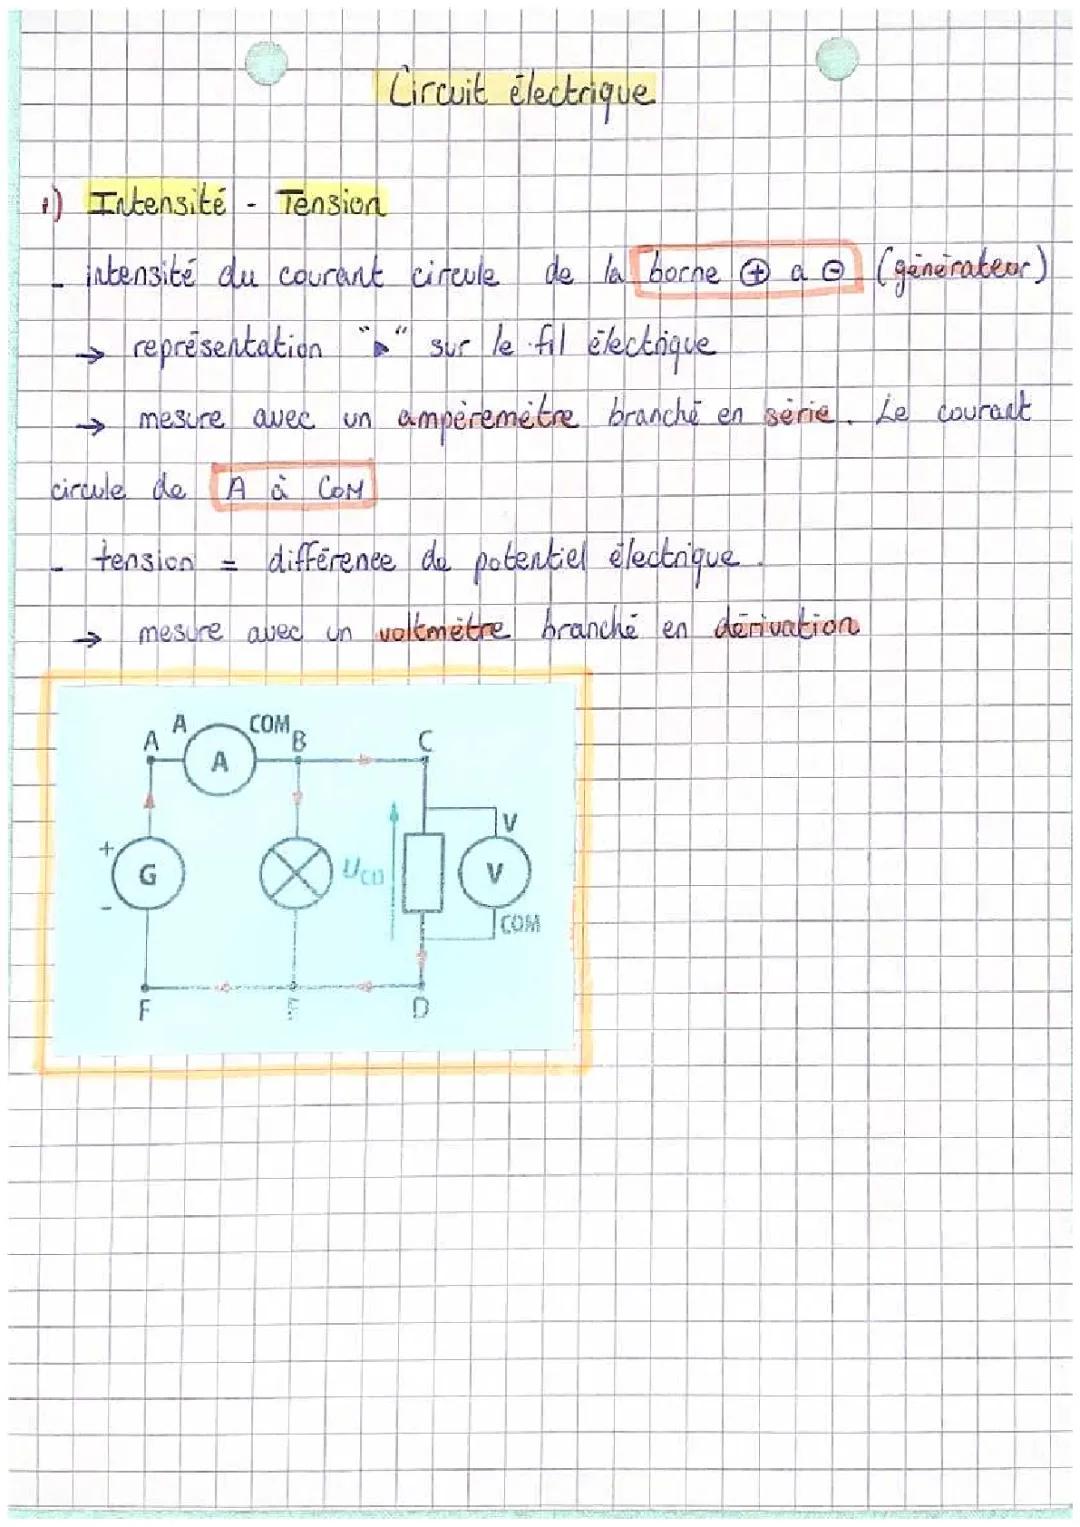 Circuit électrique
1) Intensité - Tension
- intensité du courant circule de la borne ⊕ a ⊖ (générateur)
→ représentation "▶" sur le fil électrique
→ mesure avec un ampèremètre branché en série. Le courant
circule de A à COM
- tension = différence de potentiel électrique.
→ mesure avec un voltmètre branché en dérivation
A A COM B C
A
+ G -
U_CD
V
V
COM
F E D